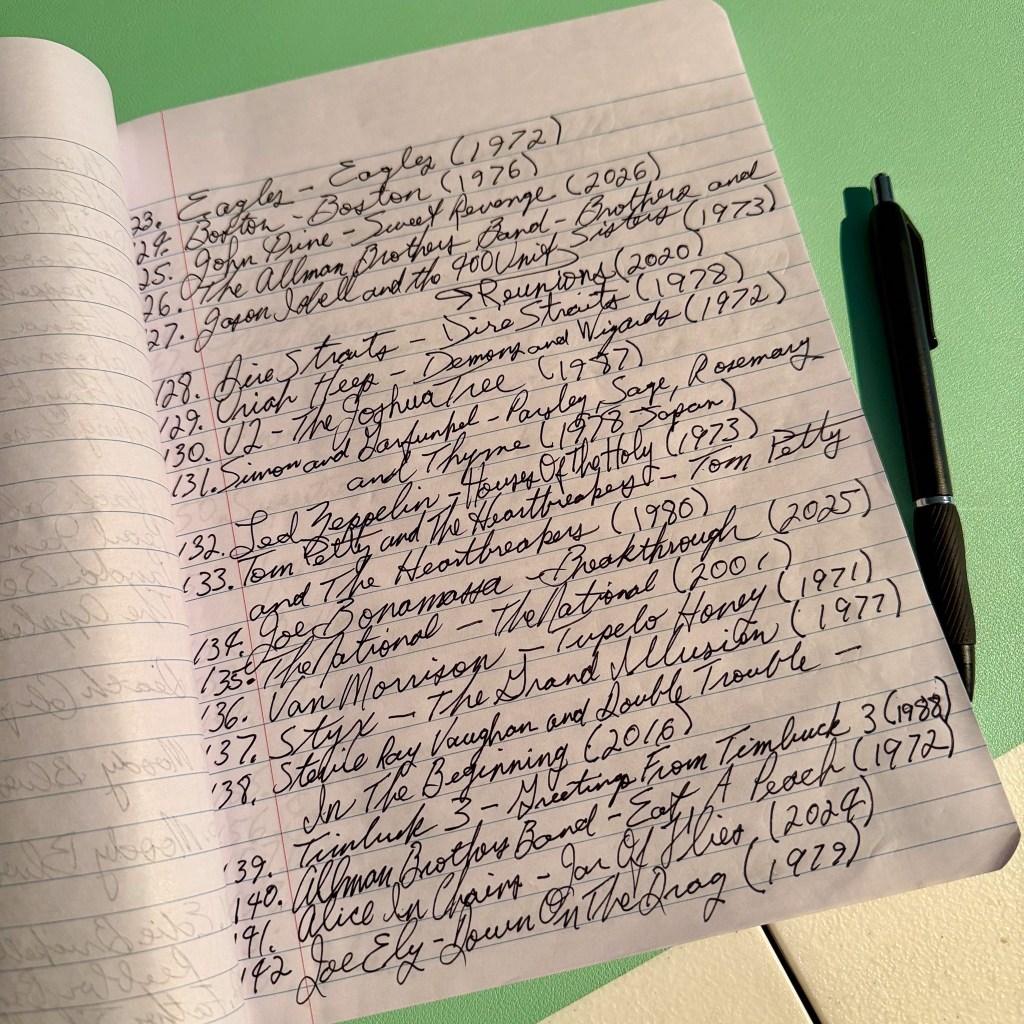 23. Eagles - Eagles (1972)
124. Boston - Boston (1976)
125. John Prine - Sweet Revenge (2026)
126. The Allman Brothers Band - Brothers and
Sisters (1973)
127. Jason Isbell and the 400 Unit
→ Reunions (2020)
128. Dire Straits - Dire Straits (1978)
129. Uriah Heep - Demons and Wizards (1972)
130. U2 - The Joshua Tree (1987)
131. Simon and Garfunkel - Parsley, Sage, Rosemary
and Thyme (1978 Japan)
132. Led Zeppelin - Houses Of The Holy (1973)
133. Tom Petty and The Heartbreakers - Tom Petty
and The Heartbreakers (1980)
134. Joe Bonamassa - Breakthrough (2025)
135. The National - The National (2001)
136. Van Morrison - Tupelo Honey (1971)
137. Styx - The Grand Illusion (1977)
138. Stevie Ray Vaughan and Double Trouble -
In The Beginning (2016)
139. Timbuck 3 - Greetings From Timbuck 3 (1988)
140. Allman Brothers Band - Eat A Peach (1972)
141. Alice In Chains - Jar Of Flies (2024)
142 Joe Ely - Down On The Drag (1979)